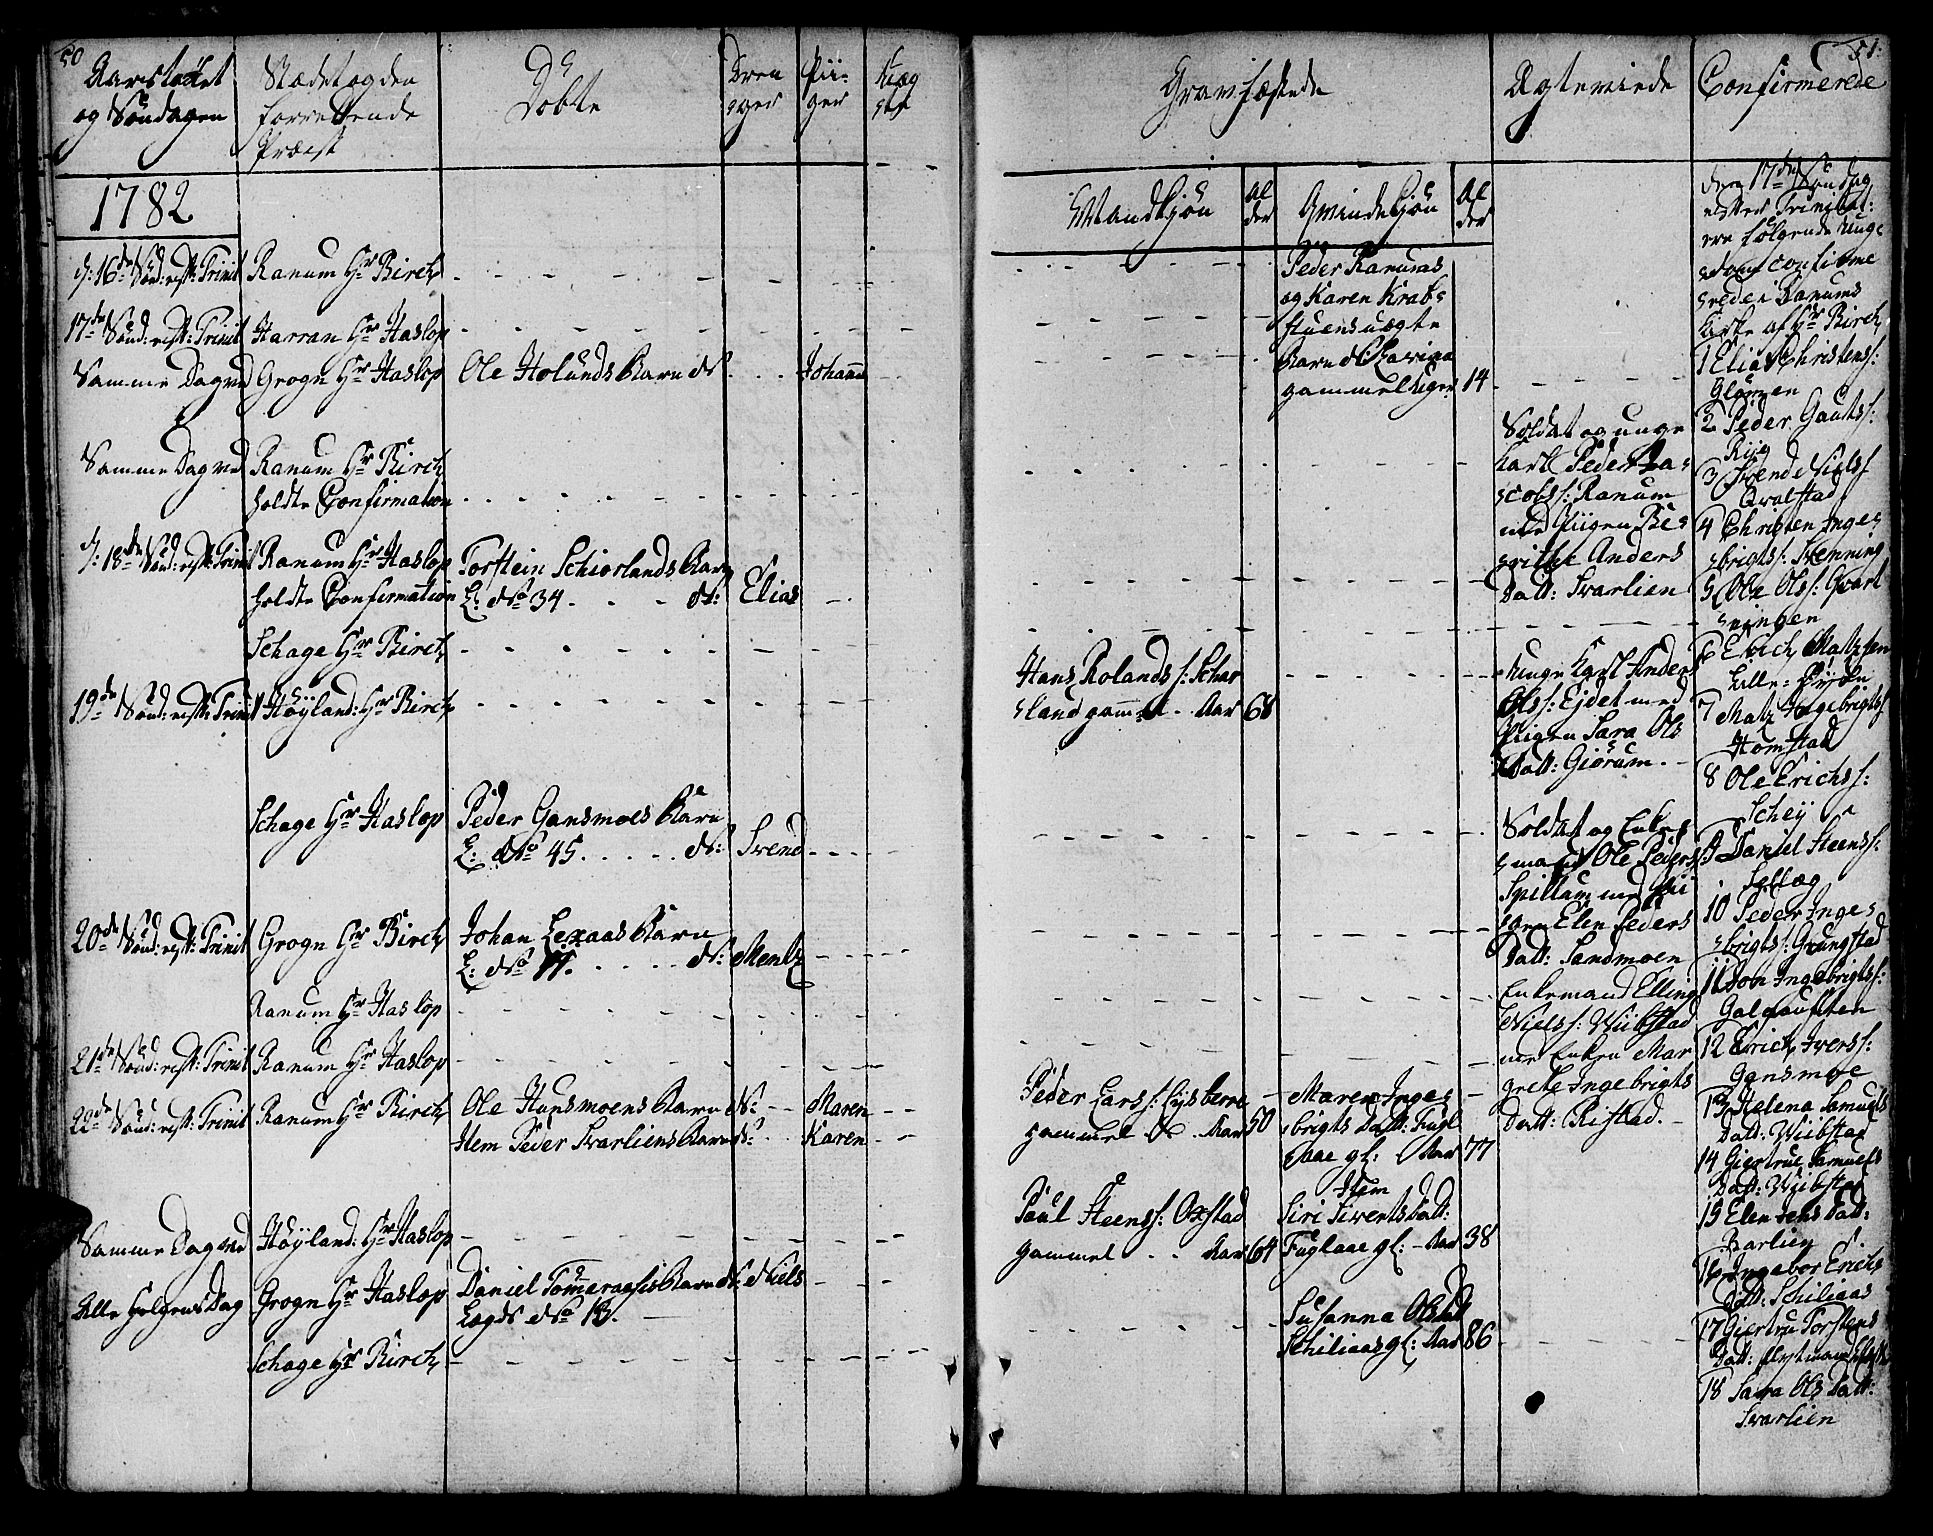 50
Aarstallet
og Søndagen
Stædet og den
forrettende
Præst
Døbte
Dren
ger
Pii-
ger
1782
d: 16de Sønd: efft: Trinit
Ranum Hr Birch
17de Sønd: efft: Trinit
Harran Hr Haslop
Samme Dag ved
Grogn Hr Haslop
Ole Holands Barn dt
Johanna
Samme Dag ved
Ranum Hr Birch
holdte Confirmation
d: 18de Sønd: efft: Trinit
Ranum Hr Haslop
holdte Confirmation
Torstein Schiorlands Barn
L: No 34 dt:
Elias
Schage Hr Birch
19de Sønd: efft: Trinit
Høyland: Hr Birch
Schage Hr Haslop
Peder Gansmoes Barn
L: No 45 dt:
Svend
20de Sønd: efft: Trinit
Grogn Hr Birch
Johan Lexaas Barn
L: No dt:
Mentz
Ranum Hr Haslop
21de Sønd: efft: Trinit
Ranum Hr Haslop
22de Sønd: efft: Trinit
Ranum Hr Birch
Ole Hansmoens Barn dt
Maren
Item Peder Svarliens Barn dt
Karen
Samme Dag ved
Høyland: Hr Haslop
Alle Helgens Dag
Grogn Hr Haslop
Daniel Tømmeraasis Barn dt
Niels
Lægds No 18.
Schage Hr Birch
51:
Gravfæstede
Mandkjøn
Al
der
Qvindekjøn
Al
der
Peder Ranums
og Karen Krab-
stuens uægte
Barn dt: Karina
gammel Uger 14
Hans Rolands s: Schar
land gam̄el Aar 68
Peder Lars s: Eysberre
gammel Aar 50
Maren Inge-
brigts Datt: Fugl
aae gl: Aar 77
Poul Steens s: Oxstad
gammel Aar 64
Item
Siri Siverts Datt:
Fuglaae gl: Aar 38
Susanna Ols Datt
Schiliaas gl: Aar 86
Ægteviede
Soldat og unge
Karl Peder Ja-
cobs s: Ranum
med Piigen Be-
rithe Anders
Datt: Svarlien
Unge Karl Anders
Ols s: Ejdet med
Piigen Sara Ols
Datt: Giørum.
Soldat og Enke-
mand Ole Peders s
Spillum med Pii
gen Elen Peders
Datt: Sandmoen
Enkemand Elling
Niels s: Wiibstad
med Enken Mar
grete Ingebrigts
Datt: Ristad.
Confirmerede
den 17de Søndag
efter Trinitat:
ere følgende Unge-
dom confirme
rede i Ranums
Kirke af Hr Birch
1 Elias Christens s:
Glømen
2 Peder Gauts s:
Riig
3 Svend Niels s
Qvalstad
4 Christen Inge-
brigts s: Svenning
5 Ole Ols s: Qvart
6 Erich Matzsen
Lille-
7 Matz Ingebrigts s
Homstad
8 Ole Erichs s:
Schey
9 Daniel Steens s:
10 Peder Inge-
brigts s: Grungstad
11 Jon Ingebrigts s:
Galgauften
12 Erich Ivers s:
Gansmoe
13 Helena Samuels
Datt: Wiibstad
14 Giertrue Samuels
Datt: Wiibstad
15 Elen Jens Datt:
Barlien
16 Ingebor Erichs
Datt: Schiliaas
17 Giertru Torstens
Datt:
18 Sara Ols Datt:
Svarlien